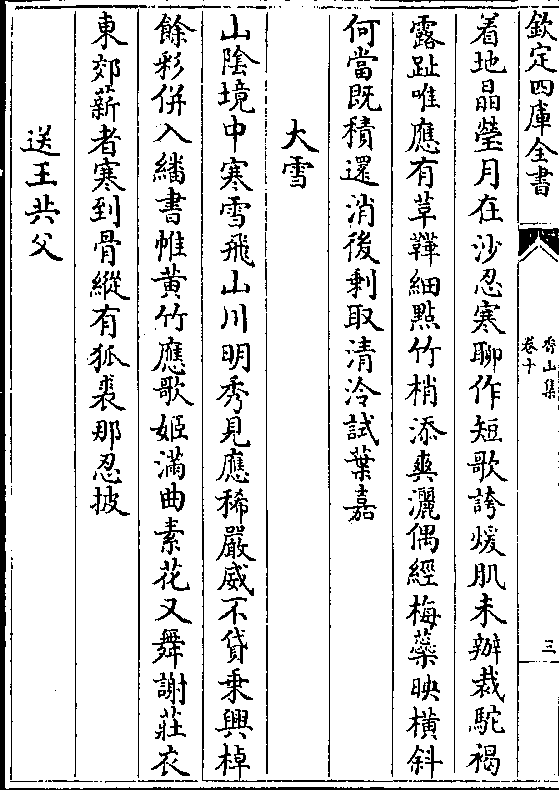 欽定四庫全書
香山集
卷十
三
着地晶瑩月在沙忍寒聊作短歌誇煖肌未辦裁駝褐
露趾唯應有草鞾細㸃竹梢添爽灑偶經梅蘂映橫斜
何當既積還消後剩取清泠試葉嘉
大雪
山陰境中寒雪飛山川明秀見應稀嚴威不貸乗興棹
餘彩併入繙書帷黃竹應歌姬滿曲素花又舞謝莊衣
東郊薪者寒到骨縱有狐裘那忍披
送王共父